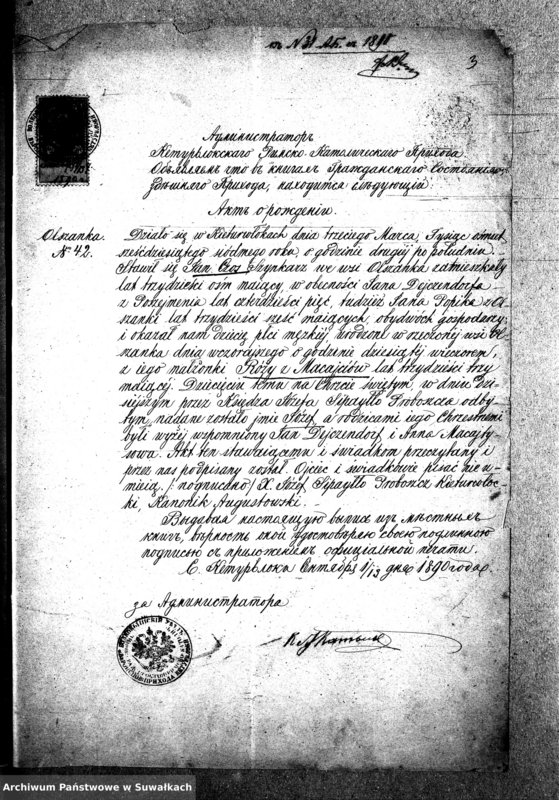 къ № 31 Аб. къ 1891
3
Администраторъ
Кетурвлокскаго Римско-Католическаго Прихода
Объявляетъ что въ книгахъ Гражданскаго Состоянія,
здѣшняго Прихода, находится слѣдующій:
Актъ о рожденіи.
Olszanka.
№ 42.
Działo się w Kieturwłokach dnia trzeciego Marca, Tysiąc ośmset
sześćdziesiątego siódmego roku, o godzinie drugiéj po południu.
Stawił się Jan Czos Szynkarz we wsi Olszanka zamieszkały
lat trzydzieści ośm maiący, w obecności Jana Dejczendorfa
z Pożymenia lat czterdzieści pięć, tudzież Jana Popika z Ol-
szanki lat trzydzieści sześć maiących, obydwóch gospodarzy
i okazał nam dziecię płci męzkiéj, urodzone w rzeczonéj wsi Ol-
szanka dnia wczorayszego o godzinie dziesiątéj wieczorem,
z iego małżonki Róży z Macajciów lat trzydzieści trzy
maiącéj. Dziecięciu temu na Chrzcie świętym, w dniu dzi-
sieyszym przez Księdza Józefa Sipayłło Proboszcza odby-
tym, nadane zostało imie Józef, a rodzicami iego Chrzestnemi
byli wyżéj wspomniony Jan Dejczendorf i Anna Macajty-
sowa. Akt ten stawaiącemu i świadkom przeczytany i
przez nas podpisany został. Ojciec i świadkowie pisać nie u-
mieią. /: подписалъ:/ X. Józef Sipayłło Proboszcz Kieturwłoc-
ki, Kanonik Augustowski.
Выдавая настоящую выпись изъ мѣстныхъ
книгъ, вѣрность оной удостовѣряю своею подлинною
подписью съ приложеніемъ официальной печати.
С. Кетурвлоки Сентября 1/13 дня 1890 года.
за Администратора
Archiwum Państwowe w Suwałkach